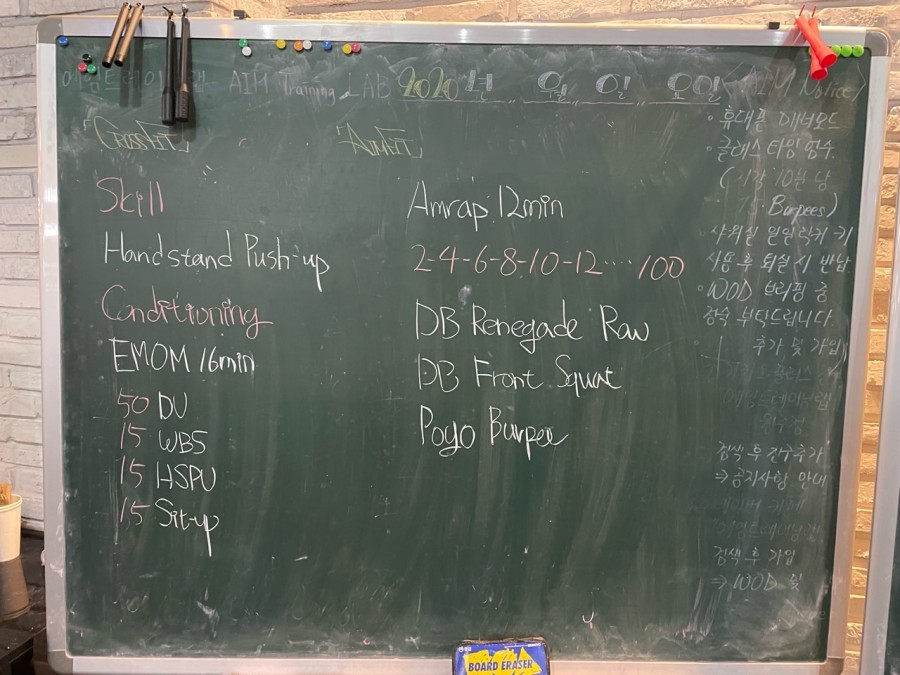 AIM Training LAB 2020년 월 일 요일
<AIM Notice>
"CROSSFIT"
"AIMFIT"
Skill
Handstand Push-up
Conditioning
EMOM 16min
50 DU
15 WBS
15 HSPU
15 Sit-up
Amrap 12min
2-4-6-8-10-12....100
DB Renegade Raw
DB Front Squat
Pogo Burpee
• 휴대폰 매너모드
• 클래스 타임 엄수
(지각 10분 당
Burpees)
샤워실 일일락커 키
사용 후 퇴실 시 반납
• WOD 브리핑 중
정숙 부탁드립니다
추가 및 가입)
검색 후 친구추가
⇒ 공지사항 안내
검색 후 가입
⇒ WOD 및
BOARD ERASER